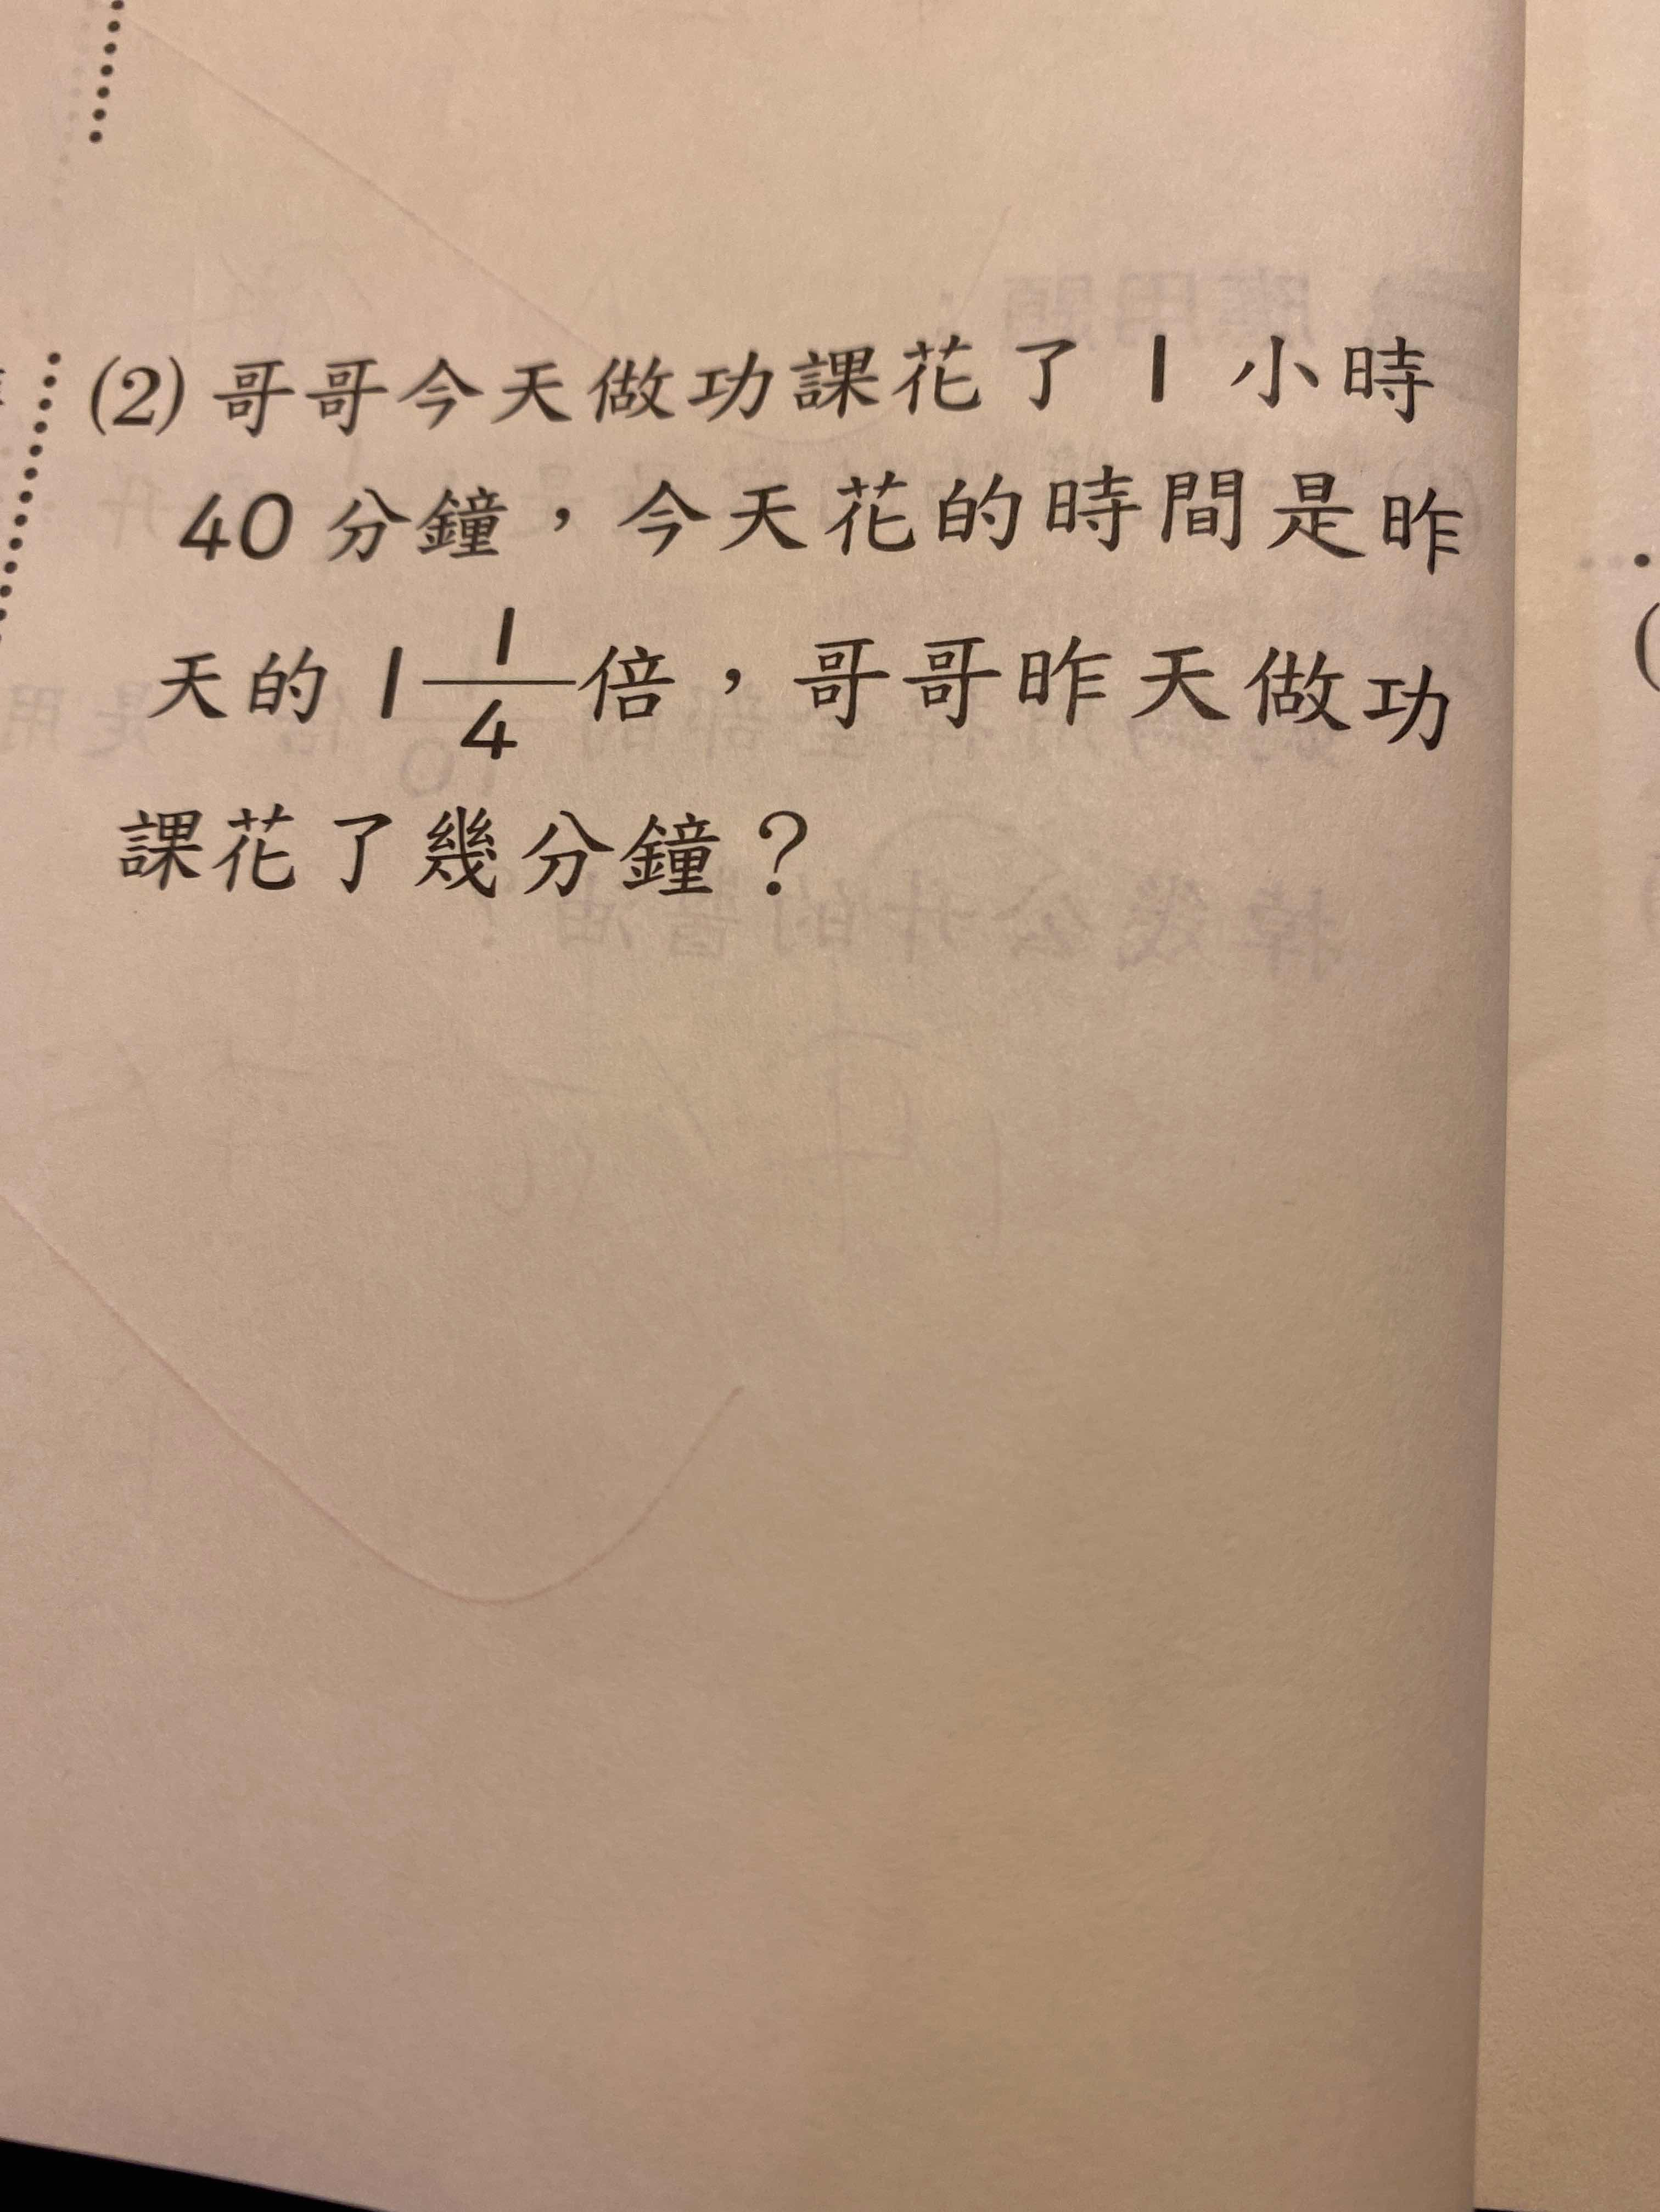 (2) 哥哥今天做功課花了 1 小時
40 分鐘，今天花的時間是昨
天的 1 1/4 倍，哥哥昨天做功
課花了幾分鐘？